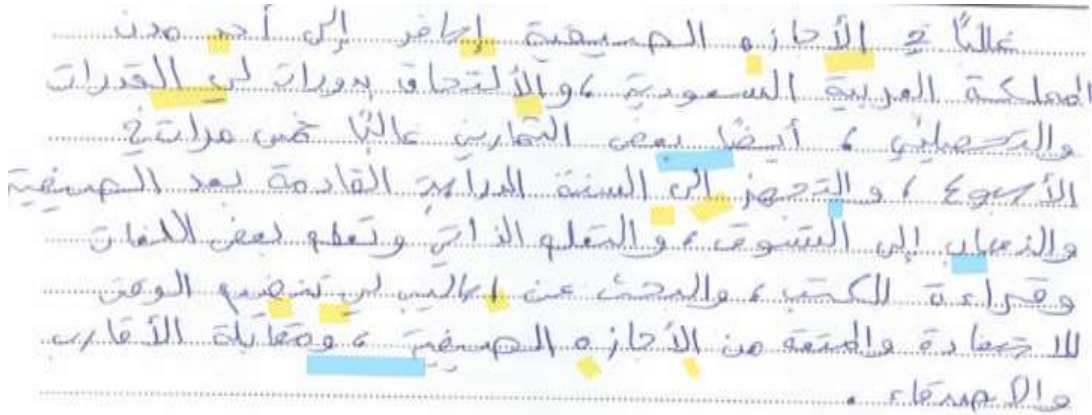 غالبًا في الأجازه الصيفية إسافر إلى أحد مدن
المملكة العربية السعودية ، والألتحاق بدورات لي القدرات
والتحصيلي ، أيضًا بعض التمارين غالبًا خمس مرات في
الأسبوع ، والتجهز الى السنة الدراسية القادمة بعد الصيفية
والذهاب إلى التسوق ، والتعلم الذاتي وتعلم بعض اللغات
وقراءة الكتب ، والبحث عن اساليب لي تنضيم الوقت
للاستفادة والمتعه من الأجازه الصيفية ، ومقابلة الأقارب
والاصدقاء .